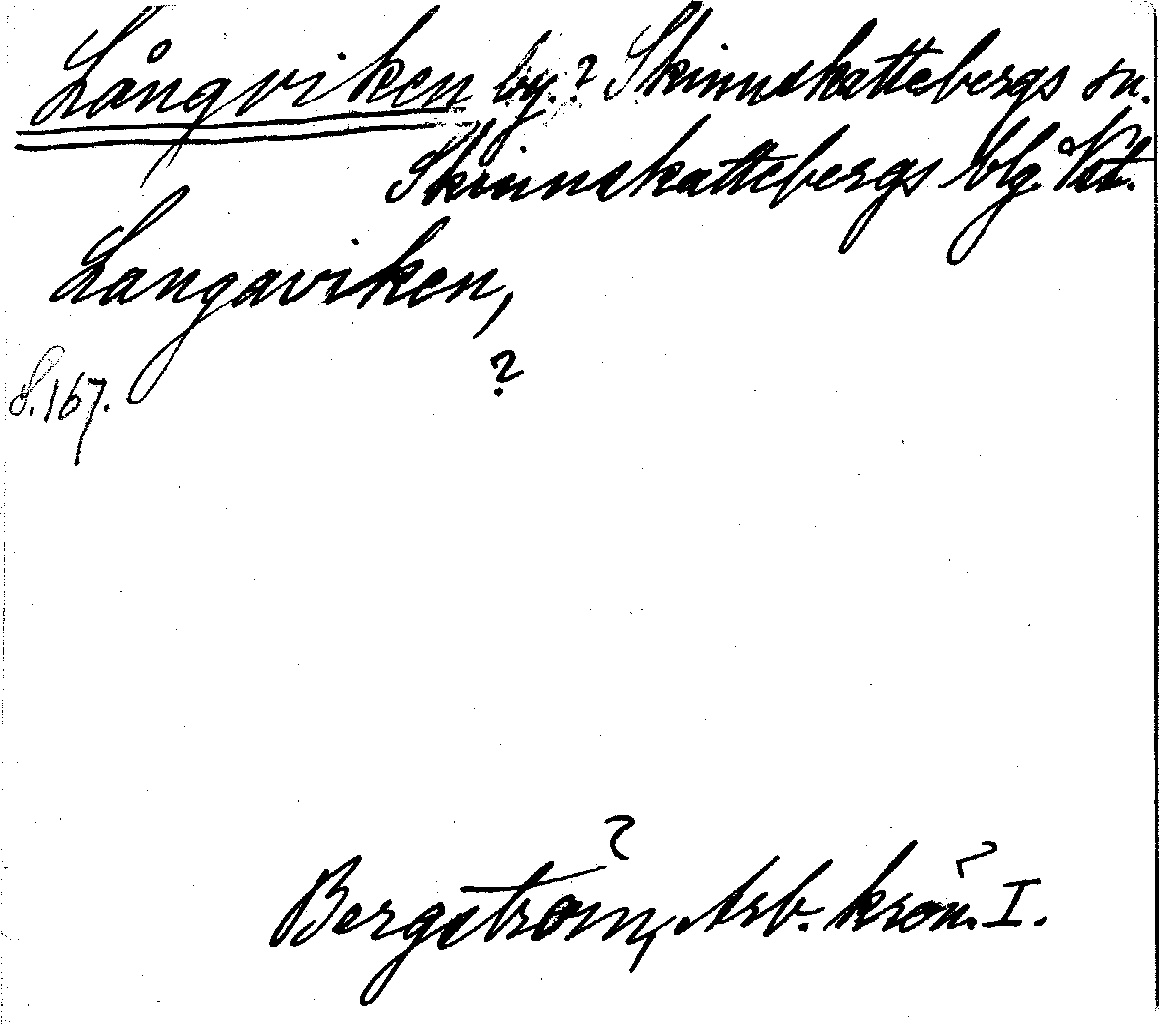 Långviken by.? Skinnskattebergs sn.
Skinnskattebergs blg. Vstm.
Langaviken,
?
s. 167.
Bergström, Arb. krön. I.